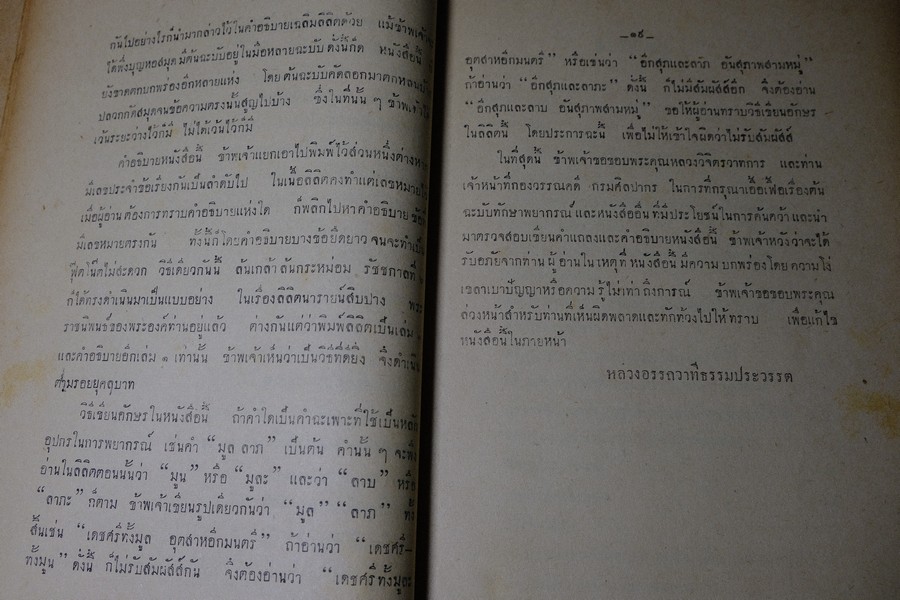 กันไปอย่างไรก็นำมากล่าวไว้ในคำอธิบายเฉลิมลิลิตด้วย แม้ข้าพเจ้า
ได้พึ่งบุญหอสมุด มีต้นฉะบับอยู่ในมือหลายฉะบับ ดั่งนี้ก็ดี หนังสือนี้
ยังขาดตกบกพร่องอีกหลายแห่ง โดยต้นฉะบับคัดลอกมาตกหล่น
ปลวกกัดสมุดจนข้อความตรงนั้นสูญไปบ้าง ซึ่งในที่นั้น ๆ ข้าพเจ้าได้
เว้นระยะว่างไว้ก็มี ไม่ได้เว้นไว้ก็มี
คำอธิบายหนังสือนี้ ข้าพเจ้าแยกเอาไปพิมพ์ไว้ส่วนหนึ่งต่างหาก
มีเลขประจำข้อเรียงกันเป็นลำดับไป ในเนื้อลิลิตคงทำแต่เลขหมายไว้
เมื่อผู้อ่านต้องการทราบคำอธิบายแห่งใด ก็พลิกไปหาคำอธิบายข้อที่
มีเลขหมายตรงกัน ทั้งนี้ก็โดยคำอธิบายบางข้อยืดยาว จนจะทำเป็น
ฟุตโน๊ตไม่สะดวก วิธีเดียวกันนี้ ล้นเกล้าล้นกระหม่อม รัชชกาลที่
ก็ได้ทรงดำเนินมาเป็นแบบอย่าง ในเรื่องลิลิตนารายน์สิบปาง พระ
ราชนิพนธ์ของพระองค์ท่านอยู่แล้ว ต่างกันแต่ว่าพิมพ์ลิลิตเป็นเล่ม ๑
และคำอธิบายอีกเล่ม ๑ เท่านั้น ข้าพเจ้าเห็นว่าเป็นวิธีที่ดียิ่ง จึงดำเนิน
ตามรอยยุคลบาท
วิธีเขียนอักษรในหนังสือนี้ ถ้าคำใดเป็นคำฉะเพาะที่ใช้เป็นหลัก
อุปกรในการพยากรณ์ เช่นคำ “มูล ลาภ” เป็นต้น คำนั้น ๆ จะพึง
อ่านในลิลิตตอนนั้นว่า “มูน” หรือ “มูละ” และว่า “ลาบ” หรือ
“ลาภะ” ก็ตาม ข้าพเจ้าเขียนรูปเดียวกันว่า “มูล” “ลาภ” ทั้ง
สิ้นเช่น “เดชศรีทั้งมูล อุตสาหอีกมนตรี” ถ้าอ่านว่า “เดชศรี—
ทั้งมูน” ดั่งนี้ ก็ไม่รับสัมผัสส์กัน จึงต้องอ่านว่า “เดชศรีทั้งมูละ
—๑๙—
อุตสาหอีกมนตรี” หรือเช่นว่า “อีกสุภและลาภ อันสุภาพสามหมู่”
ถ้าอ่านว่า “อีกสุภและลาภะ” ดั่งนี้ ก็ไม่มีสัมผัสส์อีก จึงต้องอ่าน
“อีกสุภและลาบ อันสุภาพสามหมู่” ขอให้ผู้อ่านทราบวิธีเขียนอักษร
ในลิลิตนี้ โดยประการฉะนี้ เพื่อไม่ให้เข้าใจผิดว่าไม่รับสัมผัสส์
ในที่สุดนี้ ข้าพเจ้าขอขอบพระคุณหลวงวิจิตรวาทการ และท่าน
เจ้าหน้าที่กองวรรณคดี กรมศิลปากร ในการที่กรุณาเอื้อเฟื้อเรื่องต้น
ฉะบับทักษาพยากรณ์ และหนังสืออื่น ที่มีประโยชน์ในการค้นคว้า และนำ
มาตรวจสอบเขียนคำแถลงและคำอธิบายหนังสือนี้ ข้าพเจ้าหวังว่าจะได้
รับอภัยจากท่านผู้อ่านในเหตุที่หนังสือนี้มีความบกพร่องโดยความโง่
เขลาเบาปัญญาหรือความรู้ไม่เท่าถึงการณ์ ข้าพเจ้าขอขอบพระคุณ
ล่วงหน้าสำหรับท่านที่เห็นผิดพลาดและทักท้วงไปให้ทราบ เพื่อแก้ไข
หนังสือนี้ในภายหน้า
หลวงอรรถวาทีธรรมประวรรต